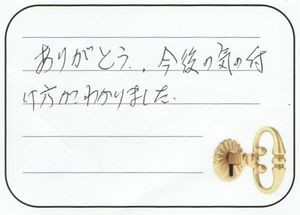 ありがとう.、今後の気の付
け方がわかりました.